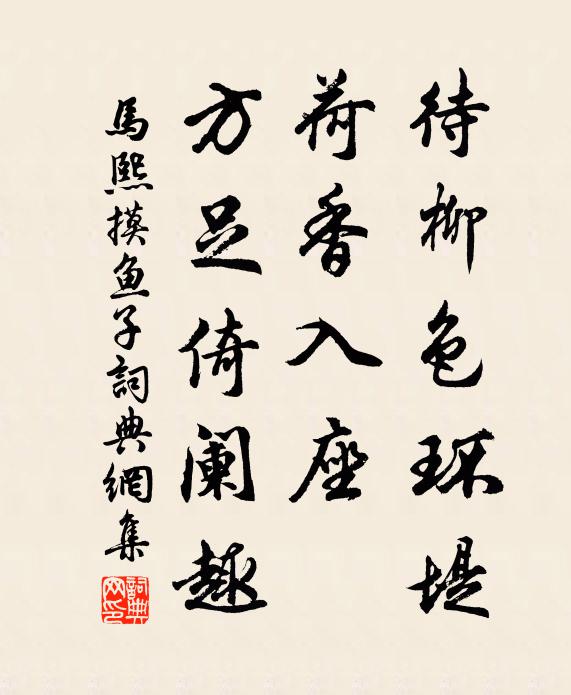 待柳色环堤
荷香入座
方足倚阑趣
馬熙摸鱼子詞典網集
詞典网印